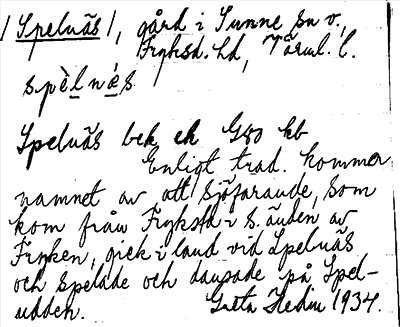 /Spelnäs/, gård i Sunne sn v.,
Fryksd. hd, Värml. l.
spèlnæ̀s
Spelnäs bek ek G80 kb
Enligt trad. kommer
namnet av att sjöfarande, som
kom från Fryksta i s. änden av
Fryken, gick i land vid Spelnäs
och spelade och dansade på Spel-
udden. Greta Hedin 1934.